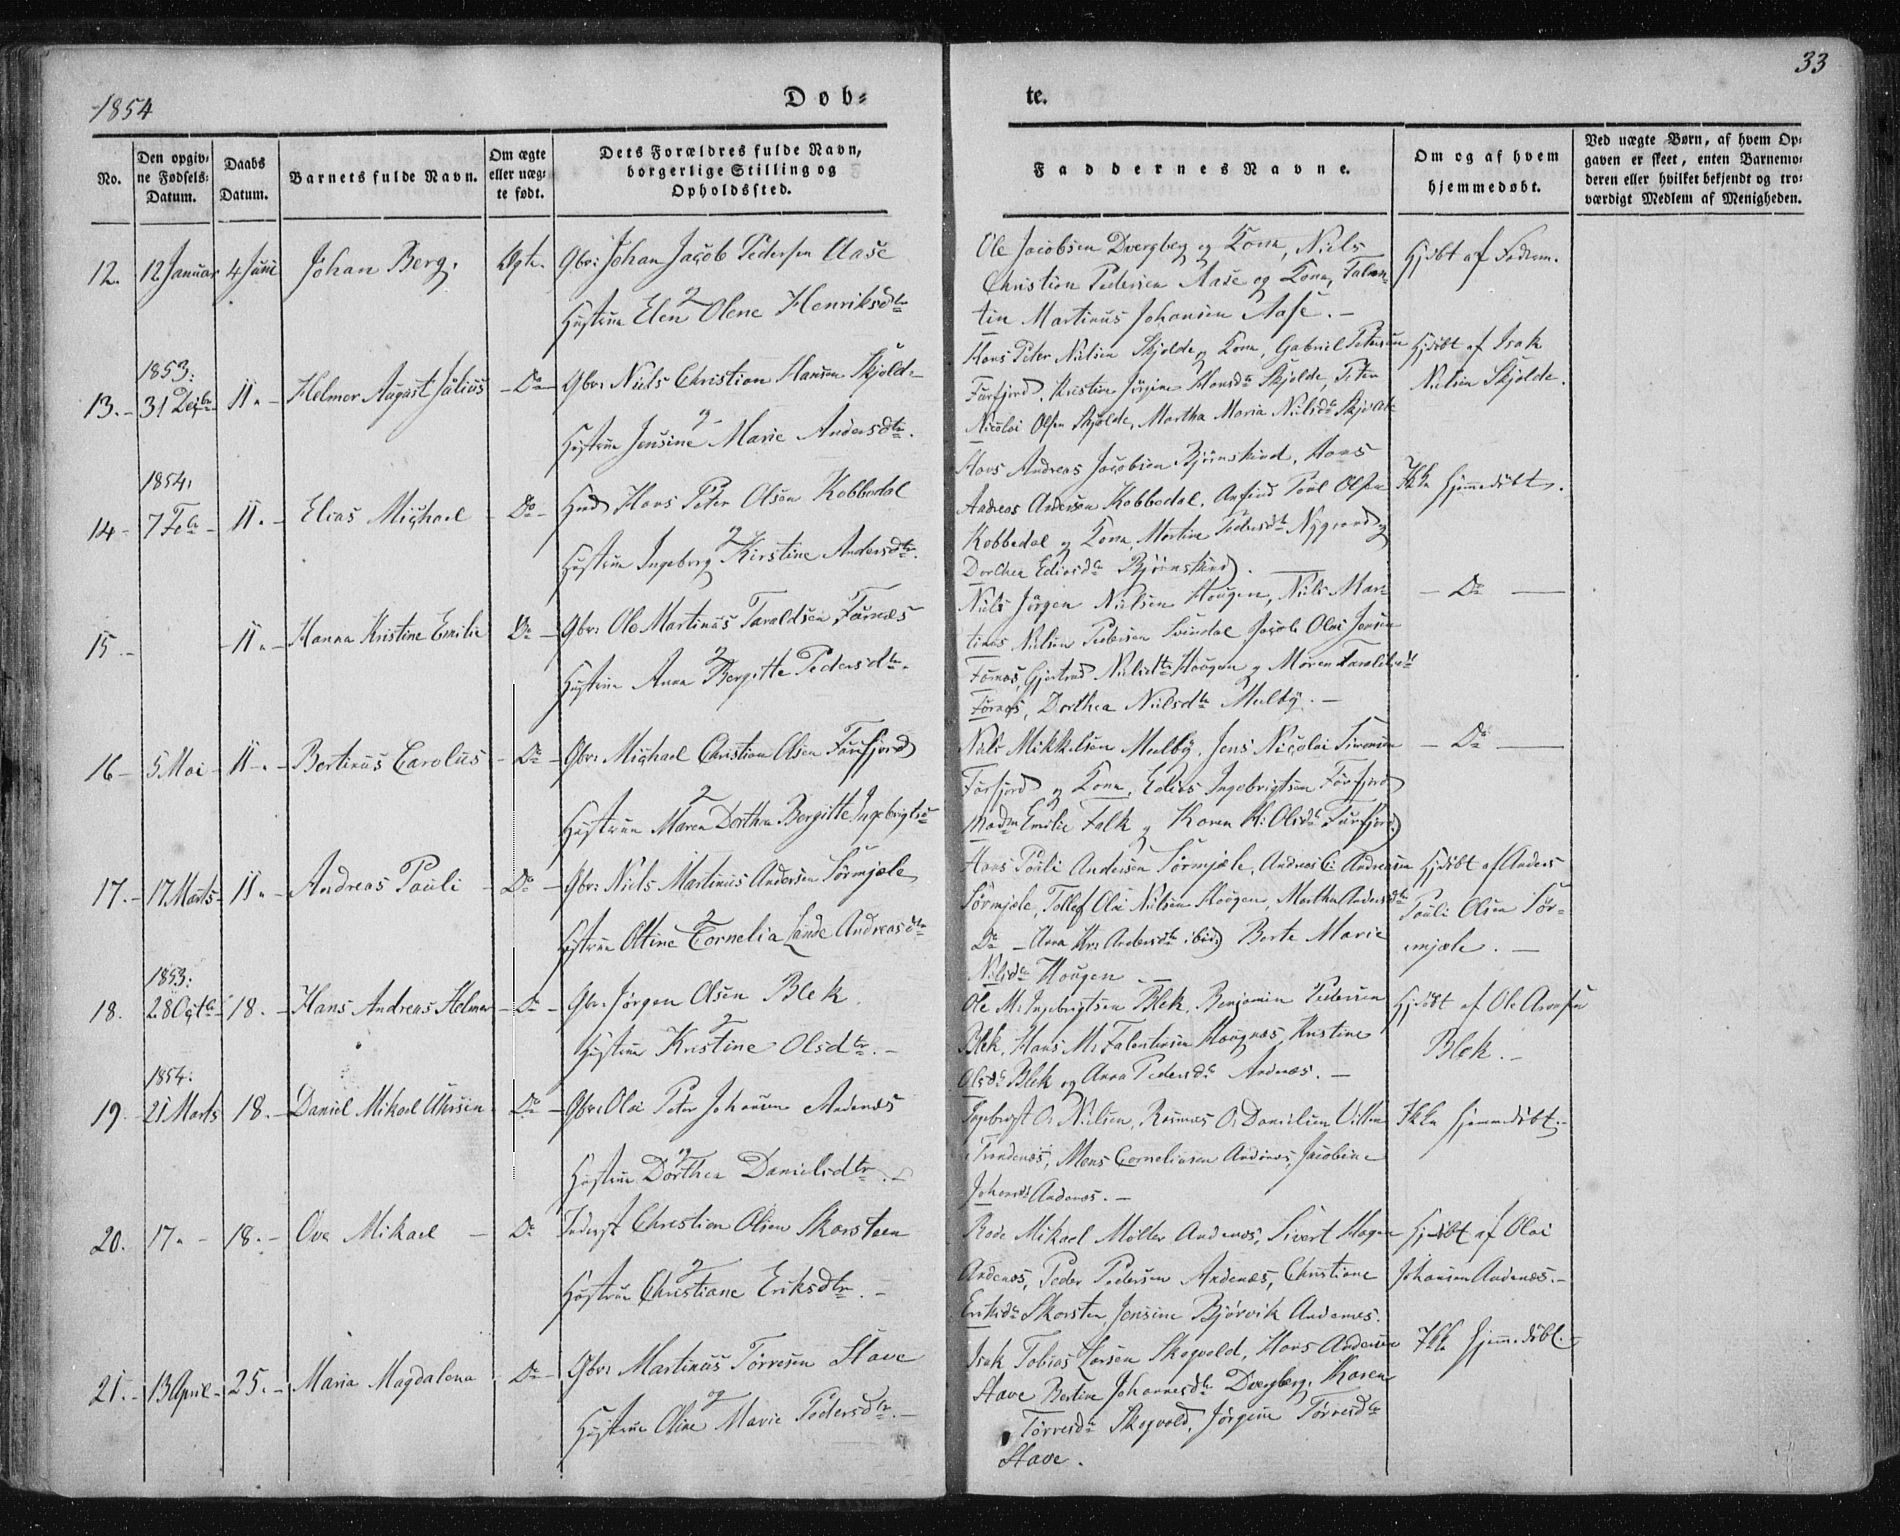 33
1854
Døb-
te.
No.
Den opgiv-
ne Fødsels-
Datum.
Daabs
Datum.
Barnets fulde Navn.
Om ægte
eller uæg-
te født.
Dets Forældres fulde Navn,
borgerlige Stilling og
Opholdssted.
Faddernes Navne.
Om og af hvem
hjemmedøbt.
Ved uægte Børn, af hvem Op-
gaven er skeet, enten Barnemo-
deren eller hvilket bekjendt og tro-
værdigt Medlem af Menigheden.
12. 12 Januar 4 Juni Johan Berg. Ægte. Gbr: Johan Jacob Pedersen Aase
og
Hustrue Elen Olene Henriksdtr
Ole Jacobsen Dverberg og Kona, Niels
Christian Pedersen Aase og Kona, Falen-
tin Martinus Johansen Aase. -
Hjdøbt af Faderen.
1853:
13. - 31 Decbr 11. - Helmer August Julius - Do - Gbr: Niels Christian Hansen Skjolde
og
Hustrue Jensine Marie Andersdtr.
Hans Peter Nielsen Skjolde og Kona, Gabriel Petersen
Furfjord, Kristine Jørgine Hansdtr Skjolde, Peter
Nicolai Olsen Skjolde, Martha Maria Nielsdtr Skjolde
Hjdøbt af Isak
Nielsen Skjolde.
1854.
14 - 7 Feb - 11. - Elias Michael - Do - Hmd Hans Peter Olsen Kobbedal
og
Hustrue Ingeborg Kirstine Andersdtr.
Hans Andreas Jacobsen Bjørnskind, Hans
Andreas Andersen Kobbedal, Arfind Poul Olsen
Kobbedal og Kona, Martine Pedersdtr Nygaard og
Dorthea Ediasdtr Bjørnskind.
Ikke hjemmedøbt.
15. - - 11. - Hanna Kristine Emilie Do - Gbr: Ole Martinus Taraldsen Fornæs
og
Hustrue Anna Bergitte Pedersdtr.
Niels Jørgen Nielsen Hougen, Niels Mar-
tinus Nielsen Pedersen Svindal Jacob Olai Jensen
Fornæs, Gjertrud Nielsdtr Hougen og Maren Taraldsdtr
Fornæs, Dorthea Nielsdtr Melby. -
- Do -
16 - 5 Mai - 11. - Bertinus Carolus - Do - Gbr: Michael Christian Olsen Furfjord
og
Hustrue Maren Dorthea Bergitte Ingebrigtsd
Niels Mikkelsen Melby, Jens Nicolai Simonsen
Forfjord og Kona, Edias Ingebrigtsen Forfjord
Madm Emilie Falk og Karen K: Olsdtr Furfjord
- Do -
17. - 17 Marts - 11. - Andreas Pauli - Do - Gbr: Niels Martinus Andersen Sørmjæle
og
Hustrue Oltine Cornelia Lände Andreasdtr
Hans Pouli Andersen Sørmjæle, Andreas C: Andreasen
Sørmjæle, Tollef Olai Nielsen Hougen, Martha Andersdtr
Do - Anna Kr: Andersdtr ibid) Berte Marie
Nielsdtr Hougen
Hjdøbt af Anders
Pouli Olsen Sør-
mjæle. -
1853:
18. 28 Octbr 18. - Hans Andreas Helmer - Do - Gbr: Jørgen Olsen Blek.
og
Hustrue Kristine Olsdtr. -
Ole M: Ingebrigtsen Blek, Benjamin Pedersen
Blek, Hans M: Falentinsen Hougnæs, Kristine
Olsdtr Blek og Anna Pedersdtr Andnæs. -
Hjdøbt af Ole Arnesen
Blek. -
1854.
19. - 21 Marts 18. - Daniel Mikael - Do - Gbr: Olai Peter Johansen Andenæs
og
Hustrue Dorthea Danielsdtr. -
Ingebrigt O: Nielsen, Rasmus O: Danielsen
Trondenæs, Mons Corneliusen Andenæs, Jacobine
Johansdtr Andenæs. -
Ikke hjemmedøbt. -
20. 17. - 18. - Ove Mikael - Do Inderst Christian Olsen Skorsteen
og
Hustrue Christiane Eriksdtr. -
Rode Mikael Møller Andenæs, Sivert Hagen
Andenæs, Peder Pedersen Andenæs, Christiane
Eriksdtr Skorsten, Jensine Bjørvik Andenæs.
Hjdøbt af Olai
Johansen Andenæs. -
21. - 13 April - 25. - Maria Magdalena - Do - Gbr: Martinus Tørresen Stave
og
Hustrue Oline Marie Pedersdtr. -
Isak Tobias Larsen Skogvold, Hans Andersen
Stave Bertine Johannesdtr Dverberg, Karen
Tørresdtr Skogvold, Jørgine Tørresdtr
Stave.
Ikke hjemmedøbt. -